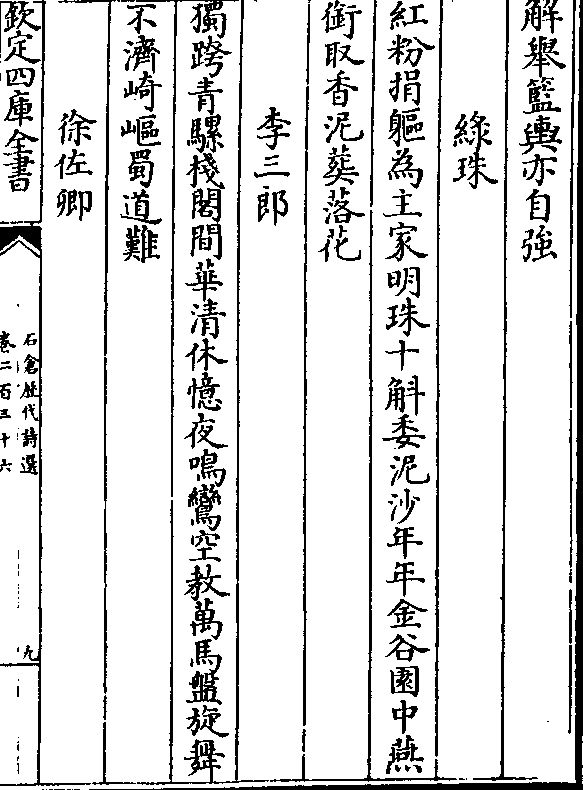 解舉籃輿亦自強
綠珠
紅粉捐軀為主家明珠十斛委泥沙年年金谷園中燕
銜取香泥葬落花
李三郎
獨跨青騾棧閣間華清休憶夜鳴鸞空教萬馬盤旋舞
不濟崎嶇蜀道難
徐佐卿
欽定四庫全書
石倉歷代詩選
卷二百三十六
九